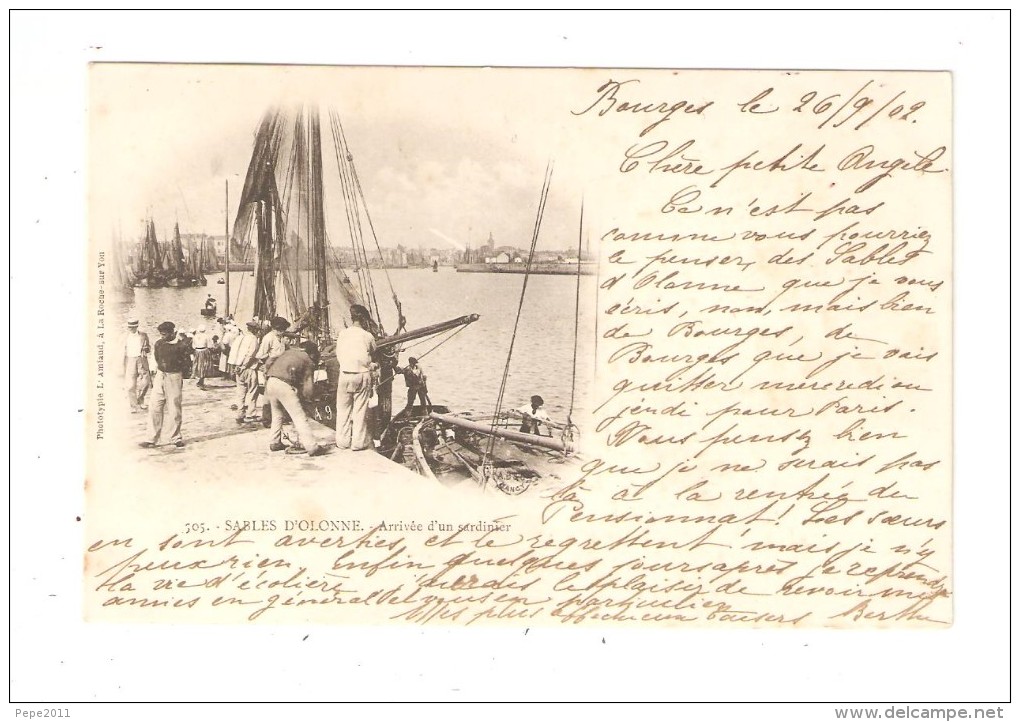 Bourges le 26/9/02.
Chère petite Angèle
Ce n'est pas
comme vous pourriez
le penser, des Sables
d'Olonne que je vous
écris, non, mais bien
de Bourges, de
Bourges que je vais
quitter mercredi ou
jeudi pour Paris.
Vous pensez bien
que je ne serais pas
là à la rentrée du
Pensionnat! Les sœurs
en sont averties et le regrettent mais je n'y
peux rien. Enfin quelques jours après je reprendrai
la vie d'écolière j'aurais le plaisir de revoir mes
amies en général et vous en particulier
Mes plus affectueux baisers Berthe
705. - SABLES D'OLONNE. - Arrivée d'un sardinier
Phototypie L. Amiaud, à La Roche-sur-Yon
A.9
NANCY
Pepe2011
www.delcampe.net